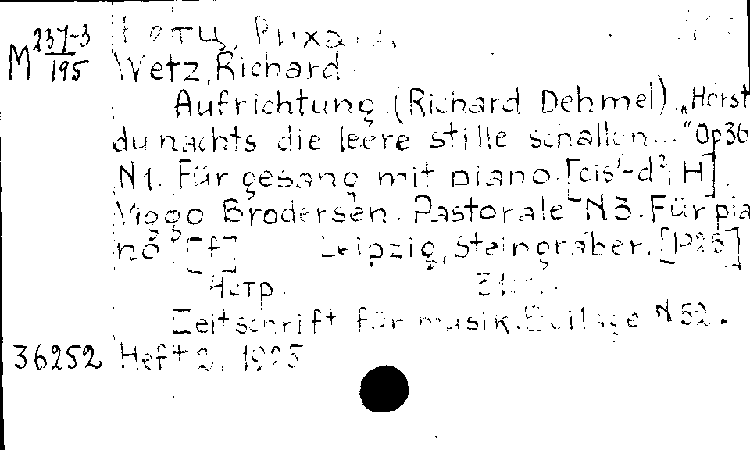 М 237-3/195
Рихард
Wetz, Richard
Aufrichtung (Richard Dehmel) „Hörst
du nachts die leere stille schallen..." Op36
N1. Für gesang mit piano. [cis¹-d²; H]
Viggo Brodersen. Pastorale N3. Für pia
no [f] Leipzig, Steingräber. [1925]
Нотр.
Zeitschrift für musik. Beilage N 52.
36252 Heft 2, 1925